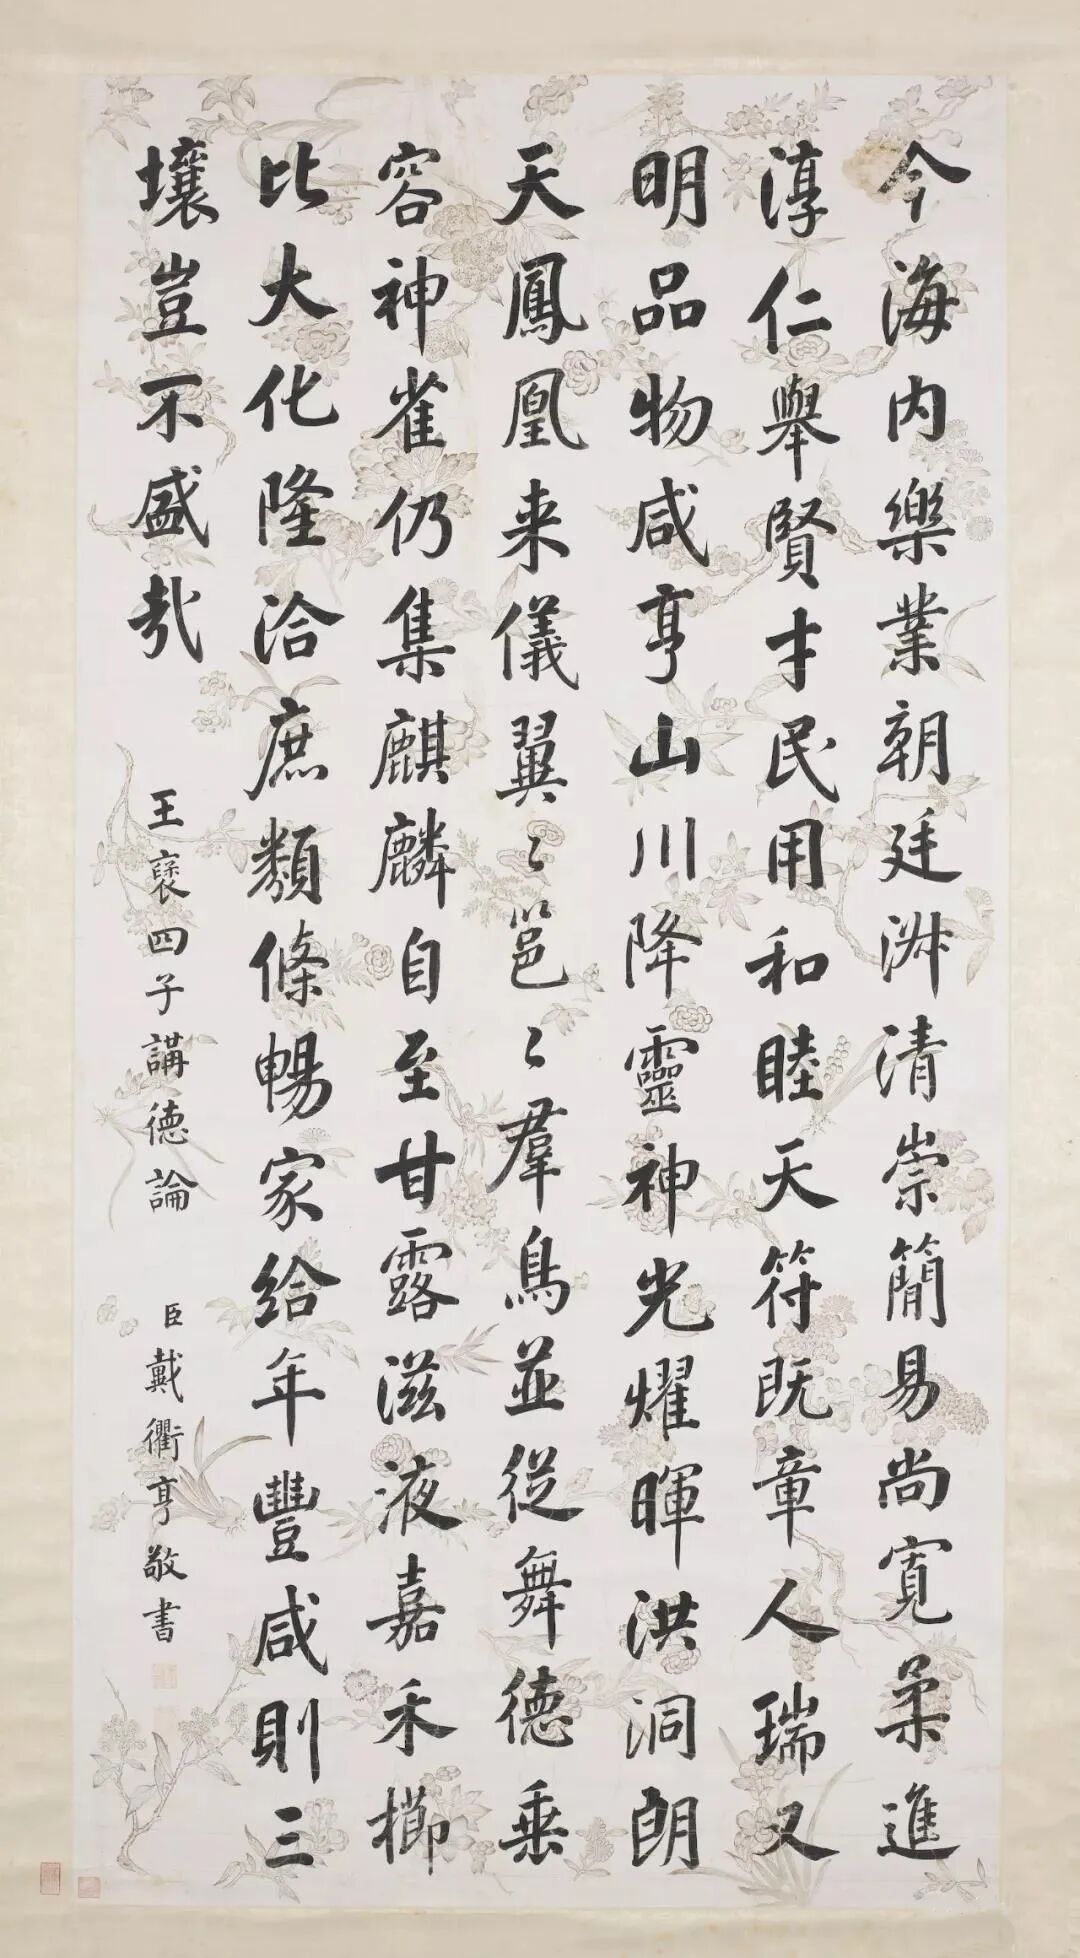 今海内樂業朝廷淋清崇簡易尚寬柔進
淳仁舉賢才民用和睦天符既章人瑞又
明品物咸亨山川降靈神光燿暉洪洞朗
天鳳凰来儀翼〻邕〻羣鳥並從舞德垂
容神雀仍集麒麟自至甘露滋液嘉禾櫛
比大化隆洽庶類條暢家給年豐咸則三
壤豈不盛哉
王褒四子講德論
臣戴衢亨敬書